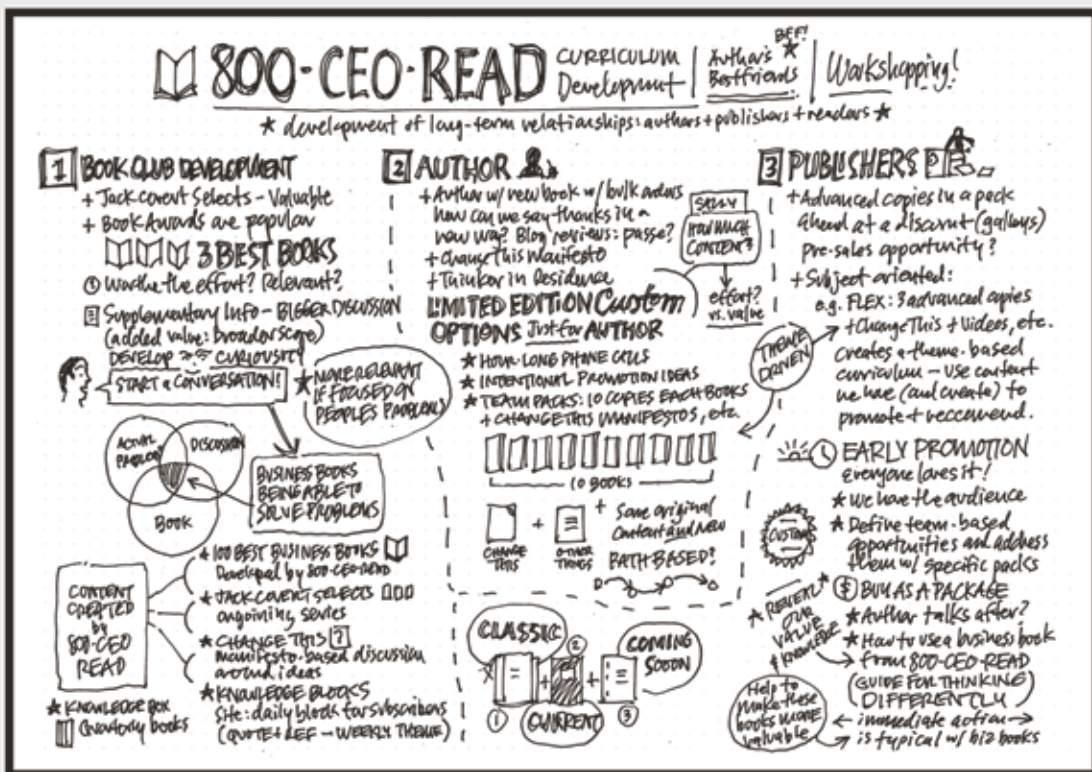 800·CEO·READ
CURRICULUM
Development
Author's
Bestfriends
BFF!
Workshopping!
* development of long-term relationships: authors + publishers + readers *
1 BOOK CLUB DEVELOPMENT
+ Jack Covert Selects – Valuable
+ Book Awards are popular
3 BEST BOOKS
Worth the effort? Relevant?
Supplementary Info – BIGGER DISCUSSION
(added value: broader scope)
DEVELOP CURIOUSITY
START a CONVERSATION!
* MORE RELEVANT
IF FOCUSED ON
PEOPLE'S PROBLEM)
ACTUAL
PROBLEM
DISCUSSION
BOOK
BUSINESS BOOKS
BEING ABLE TO
SOLVE PROBLEMS
CONTENT
CREATED
by
800-CEO
READ
* 100 BEST BUSINESS BOOKS
Developed by 800-CEO-READ
* JACK COVERT SELECTS
ongoining series
* CHANGE THIS
manifesto-based discussion
around ideas
* KNOWLEDGE BLOCKS
Site: daily block for subscribers
(QUOTE + REF – WEEKLY THEME)
* KNOWLEDGE BOX
Quarterly books
2 AUTHOR
+ Author w/ new book w/ bulk orders
how can we say thanks in a
new way? Blog reviews: passe?
+ Change This manifesto
+ Thinker in Residence
HOW MUCH
CONTENT?
effort?
vs. value
LIMITED EDITION Custom
OPTIONS Just for AUTHOR
* HOUR-LONG PHONE CALLS
* INTENTIONAL PROMOTION IDEAS
* TEAM PACKS: 10 COPIES EACH BOOKS
+ CHANGE THIS MANIFESTOS, etc.
10 BOOKS
CHANGE
THIS
+
OTHER
THINGS
+ Some original
content and new
PATH BASED?
CLASSIC
+
+
COMING
SOON
1
2
3
CURRENT
3 PUBLISHERS P
+ Advanced copies in a pack
ahead at a discount (galleys)
pre-sales opportunity?
+ Subject oriented:
e.g. FLEX: 3 advanced copies
+ Change This + Videos, etc.
Creates a theme-based
curriculum – use content
we have (and create) to
promote + reccomend.
THEME
DRIVEN
EARLY PROMOTION
everyone loves it!
* We have the audience
* Define team-based
opportunities and address
them w/ specific packs
CUSTOM
$ BUY AS A PACKAGE
* Author talks after?
* How to use a business book
from 800-CEO-READ
(GUIDE FOR THINKING
DIFFERENTLY)
immediate action
is typical w/ biz books
* REVEAL *
OUR
VALUE
& KNOWLEDGE
Help to
make these
books more
valuable